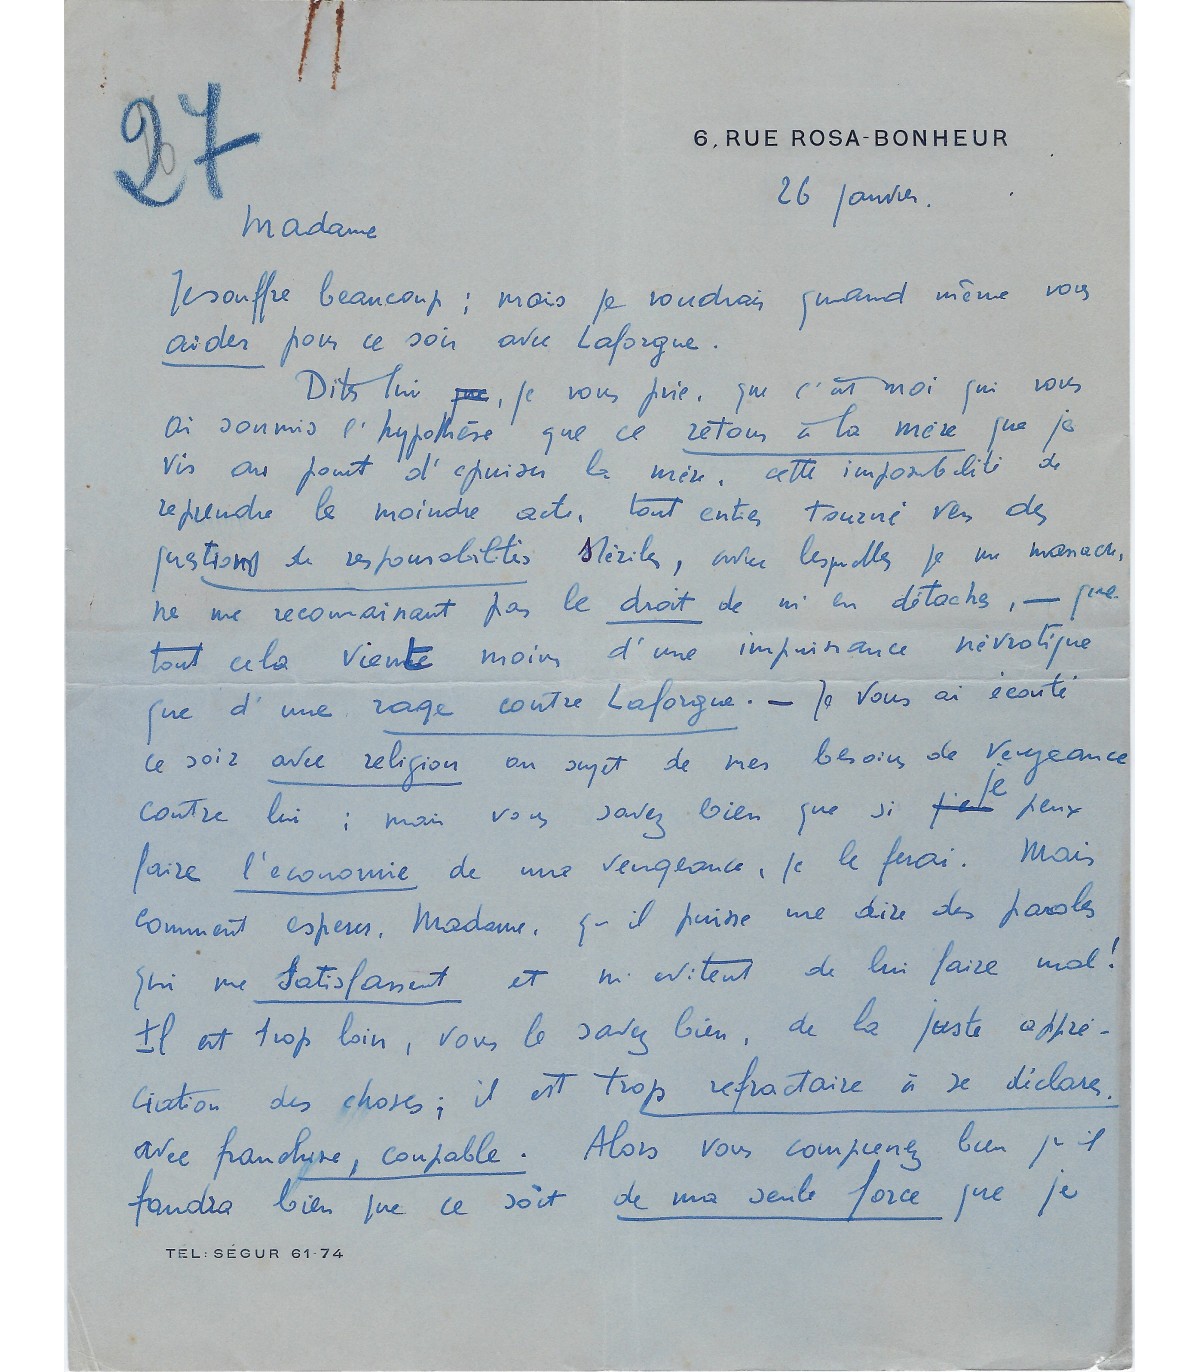 27
6, RUE ROSA-BONHEUR
26 janvier.
Madame
Je souffre beaucoup ; mais je voudrais quand même vous
aider pour ce soir avec Laforgue.
Dites lui que, je vous prie, que c'est moi qui vous
ai soumis l'hypothèse que ce retour à la mère que je
vis au point d'épuiser la mère, cette impossibilité de
reprendre le moindre acte, tout entier tourné vers des
questions de responsabilités stériles, avec lesquelles je me
ne me reconnaissant pas le droit de m'en détacher, — que
tout cela vient moins d'une impuissance névrotique
que d'une rage contre Laforgue. — Je vous ai écouté
ce soir avec religion au sujet de mes besoins de vengeance
contre lui ; mais vous savez bien que si je peux
faire l'économie de une vengeance, je le ferai. Mais
comment espérer, Madame, qu'il puisse me dire des paroles
qui me satisfassent et m'évitent de lui faire mal !
Il est trop loin, vous le savez bien, de la juste appré-
ciation des choses ; il est trop réfractaire à se déclarer,
avec franchise, coupable. Alors vous comprenez bien qu'il
faudra bien que ce soit de ma seule force que je
TEL: SÉGUR 61-74